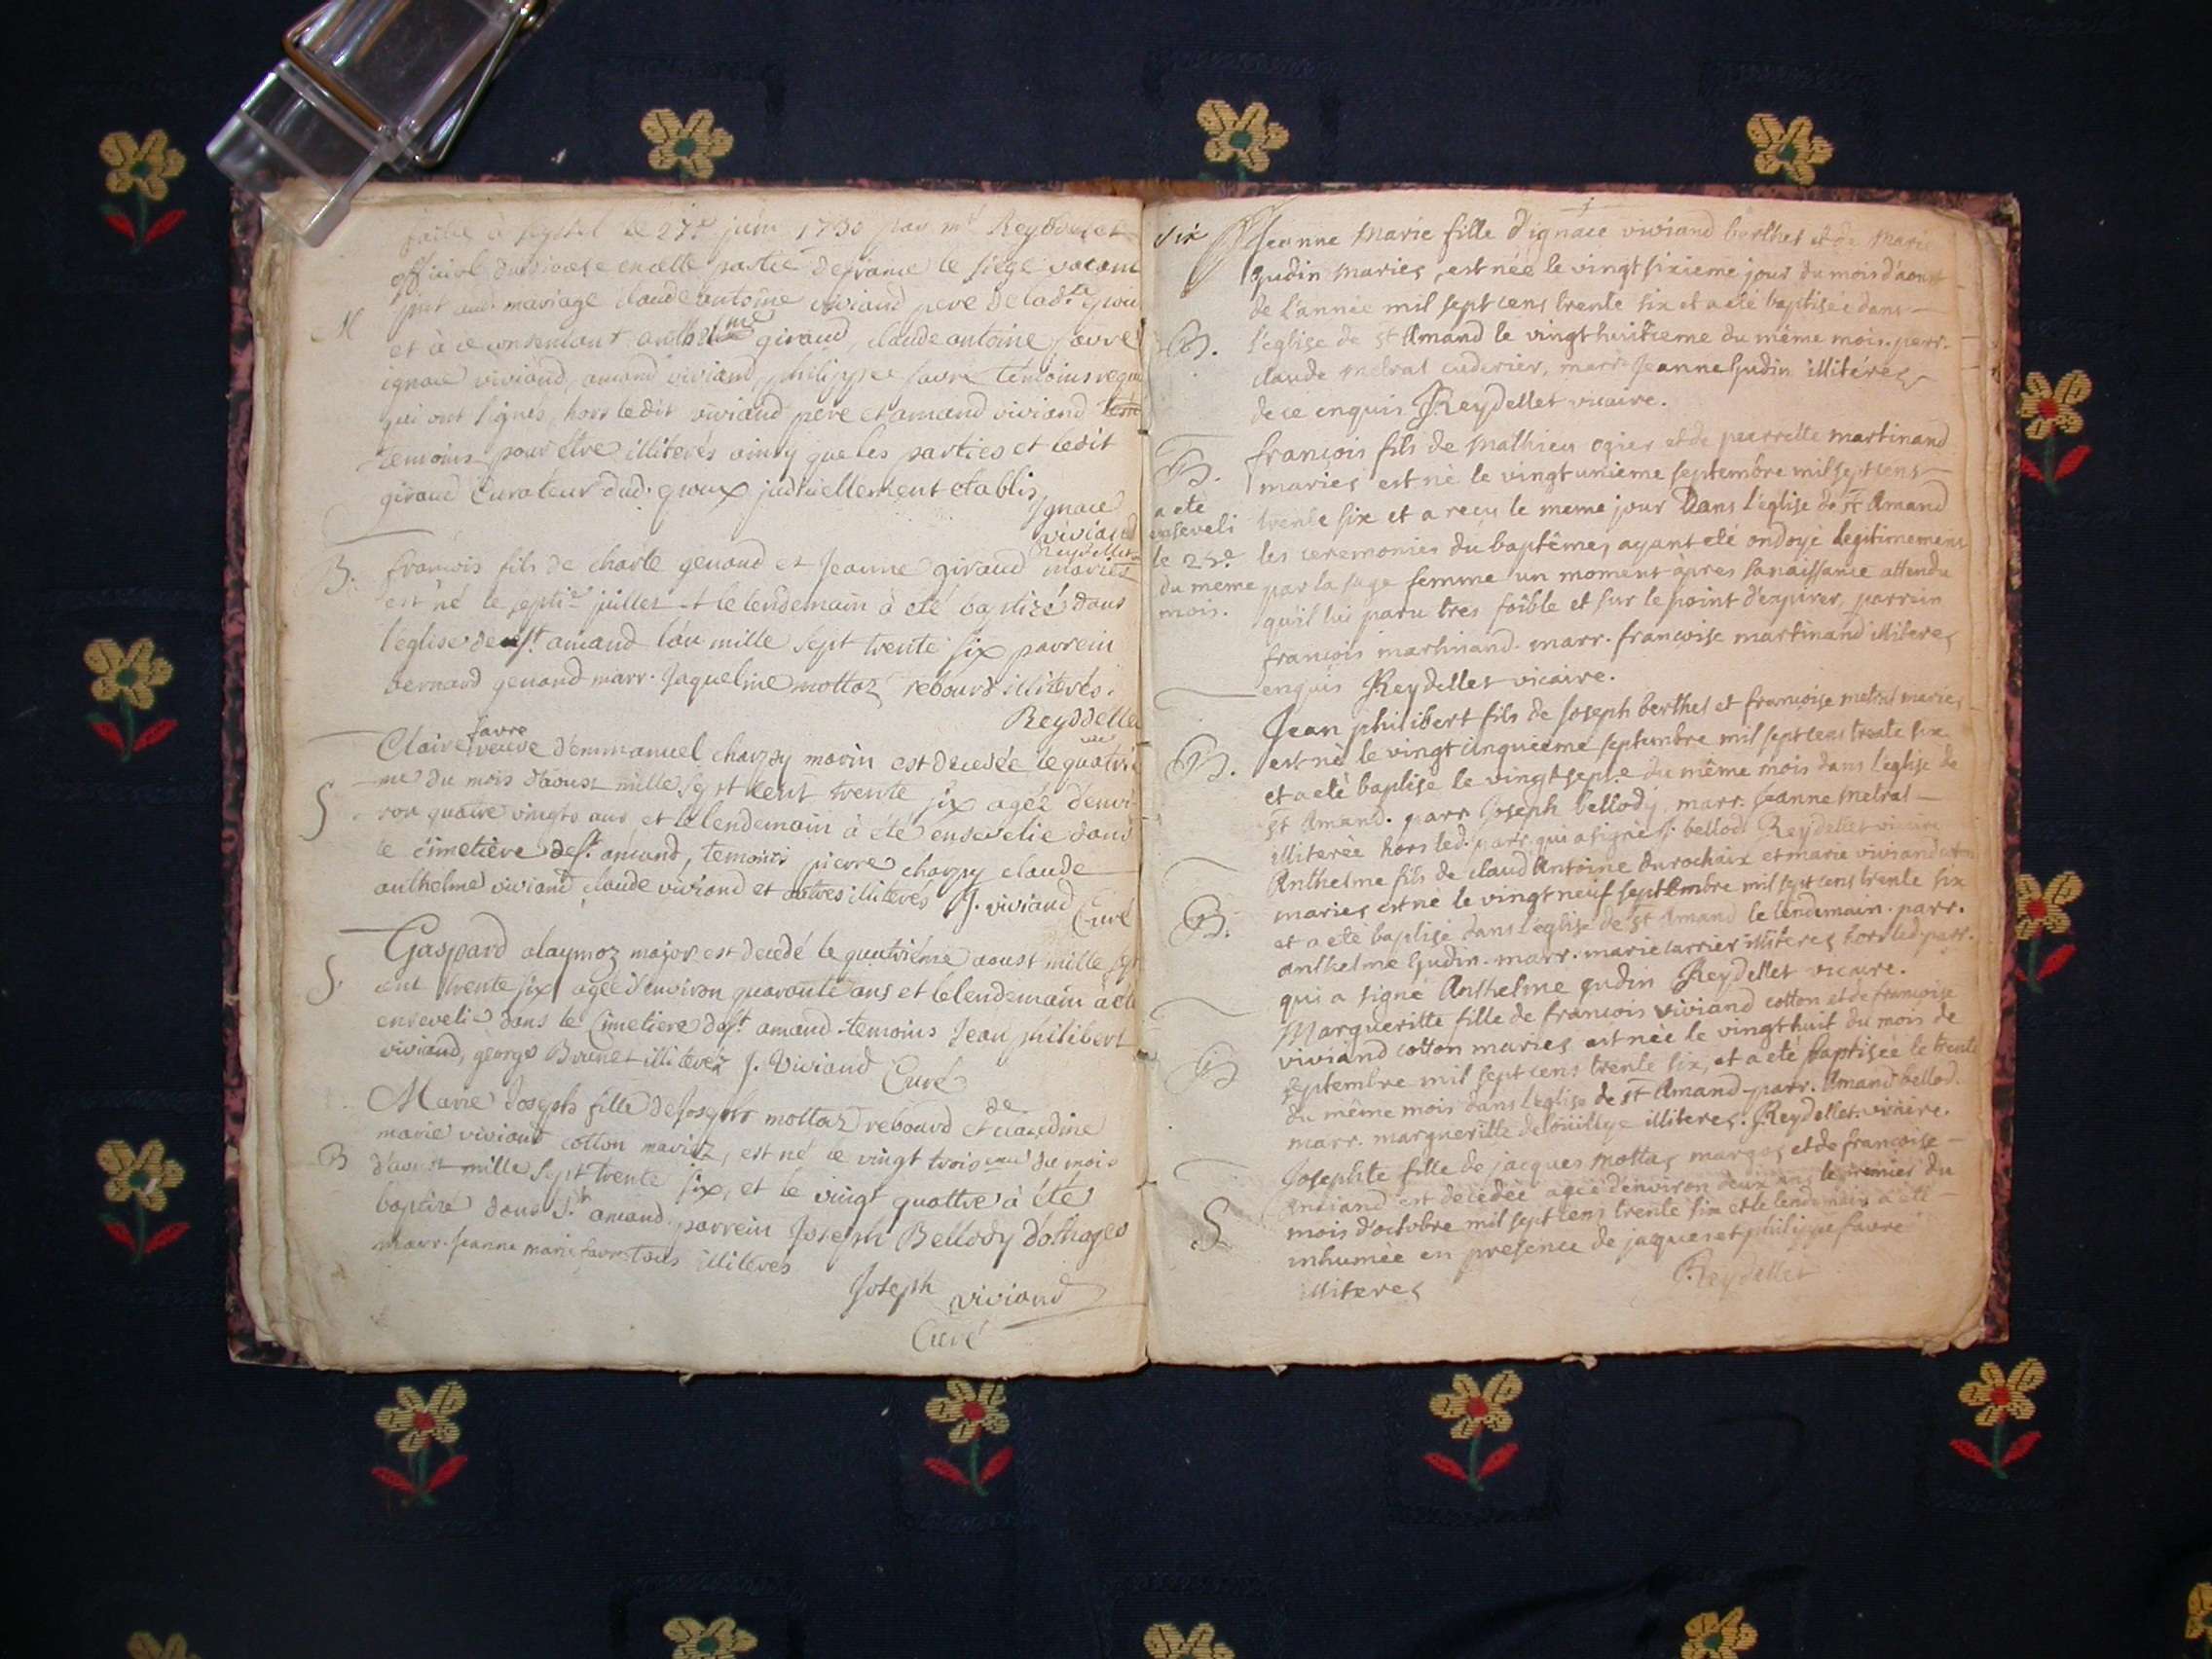 à le 27.e juin 1736 par mr Reydellet
officiel du diocese en cette partie de france le siege vacant
M
pnt aud. mariage claude antoine viviand pere de lad.te
et à ce consentant anthelme giraud, claude antoine favre
ignace viviand, amand viviand, philippe favre temoins
qui ont signés, hors ledit viviand pere et amand viviand
temoins pour être illiterés ainsy que les parties et ledit
giraud curateur dud. judiciellement etablis
Ignace
viviand
Reydellet
B. francois fils de charle genoud et Jeanne giraud mariez
est né le septie juillet et le lendemain à eté baptizé dans
l'eglise de st. amand l'an mille sept trente six parrein
bernard genoud marr. Jaqueline mottaz rebourd illiterés.
Reyddellet
vic
favre
Claire veuve d'emmanuel charpy marin est decedée le quatrié
me du mois d'aoust mille sept cent trente six agée d'envi-
S. ron quatre vingts ans et le lendemain à été ensevelie dans
le cimetiere de st. amand, temoins pierre charpy claude
anthelme viviand claude viviand et autres illiterés J. viviand
Curé
Gaspard alaymoz major est decedé le quatriéme aoust mille sept
S. cent trente six agée d'environ quarante ans et le lendemain à été
enseveli dans le Cimetiere de st amand temoins Jean philibert
viviand, george Brunet illiterez J. Viviand
Curé
Marie Joseph fille de Joseph mottaz rebourd et de claudine
marie viviand cotton mariez, est né le vingt troisieme du mois
B d'aoust mille sept trente six, et le vingt quattre à été
baptizé dans St. amand parrein Joseph Bellody
marr. Jeanne marie favre tous illiteres
Joseph viviand
Curé
six Jeanne Marie fille d'ignace viviand berthet et de Marie
gudin mariés, est née le vingt sixieme jour du mois d'aoust
de l'année mil sept cens trente six et a eté baptisée dans
B. l'eglise de st Amand le vingt huitieme du même mois. parr.
claude metral cuderier, marr. Jeanne gudin illitérés
de ce enquis Reydellet vicaire.
B. francois fils de Mathieu ogier et de pierrette martinand
mariés est né le vingt unieme septembre mil sept cens
a eté trente six et a reçu le meme jour Dans l'église de St Amand
enseveli
le 25.e les ceremonies du baptême, ayant eté ondoyé legitimement
du meme par la sage femme un moment après sa naissance attendu
mois. qu'il lui paru tres foible et sur le point d'expirer, parrein
francois martinand. marr. francoise martinand illiteres
enquis Reydellet vicaire.
Jean philibert fils de Joseph berthet et françoise metral mariés
B. est né le vingt cinquieme septembre mil sept cens trente six
et a eté baptisé le vingt sept.e du même mois dans l'eglise de
St Amand. parr. Joseph bellody marr. Jeanne metral
illiterée hors led. parr. qui a signé J. bellod Reydellet vicaire
Anthelme fils de claud Antoine durochaix et marie viviand cotton
B. mariés est né le vingt neuf septembre mil sept cens trente six
et a eté baptisé dans l'eglise de St Amand le lendemain. parr.
anthelme gudin. marr. marie carrier illiteres hors led. parr.
qui a signé Anthelme gudin Reydellet vicaire.
Margueritte fille de francois viviand cotton et de françoise
B viviand cotton mariés est née le vingt huit du mois de
septembre mil sept cens trente six, et a eté baptisée le trente
du même mois dans l'eglise de St Amand parr. Amand bellod.
marr. margueritte illiteres. Reydellet vicaire.
Josephte fille de jacques mottaz et de françoise
est decedée agée d'environ deux ans le premier du
S mois d'octobre mil sept cens trente six et le lendemain a eté
inhumée en presence de jaques et philippe favre
illiteres Reydellet